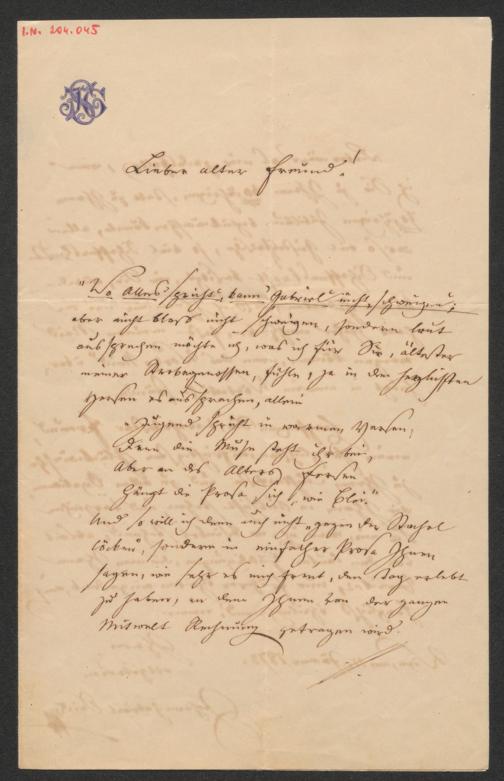 I.N. 204.045
Lieber alter Freund!
"Wo Alles spricht, kann Gabriel nicht schweigen";
aber nicht bloss nicht schweigen, sondern laut
aussprechen möchte ich, was ich für Sie, ältester
meiner Strebegenossen, fühle, ja in den herzlichsten
Versen es aussprechen, allein
"Jugend spricht in warmen Versen,
Denn die Muse steht ihr bei,
Aber an des Alters Fersen
Hängt die Prosa sich, wie Blei."
Und so will ich denn auch nicht "gegen den Stachel
löcken", sondern in einfacher Prosa Ihnen
sagen, wie sehr es mich freut, den Tag erlebt
zu haben, an dem Ihnen von der ganzen
Mitwelt Rechnung getragen wird.